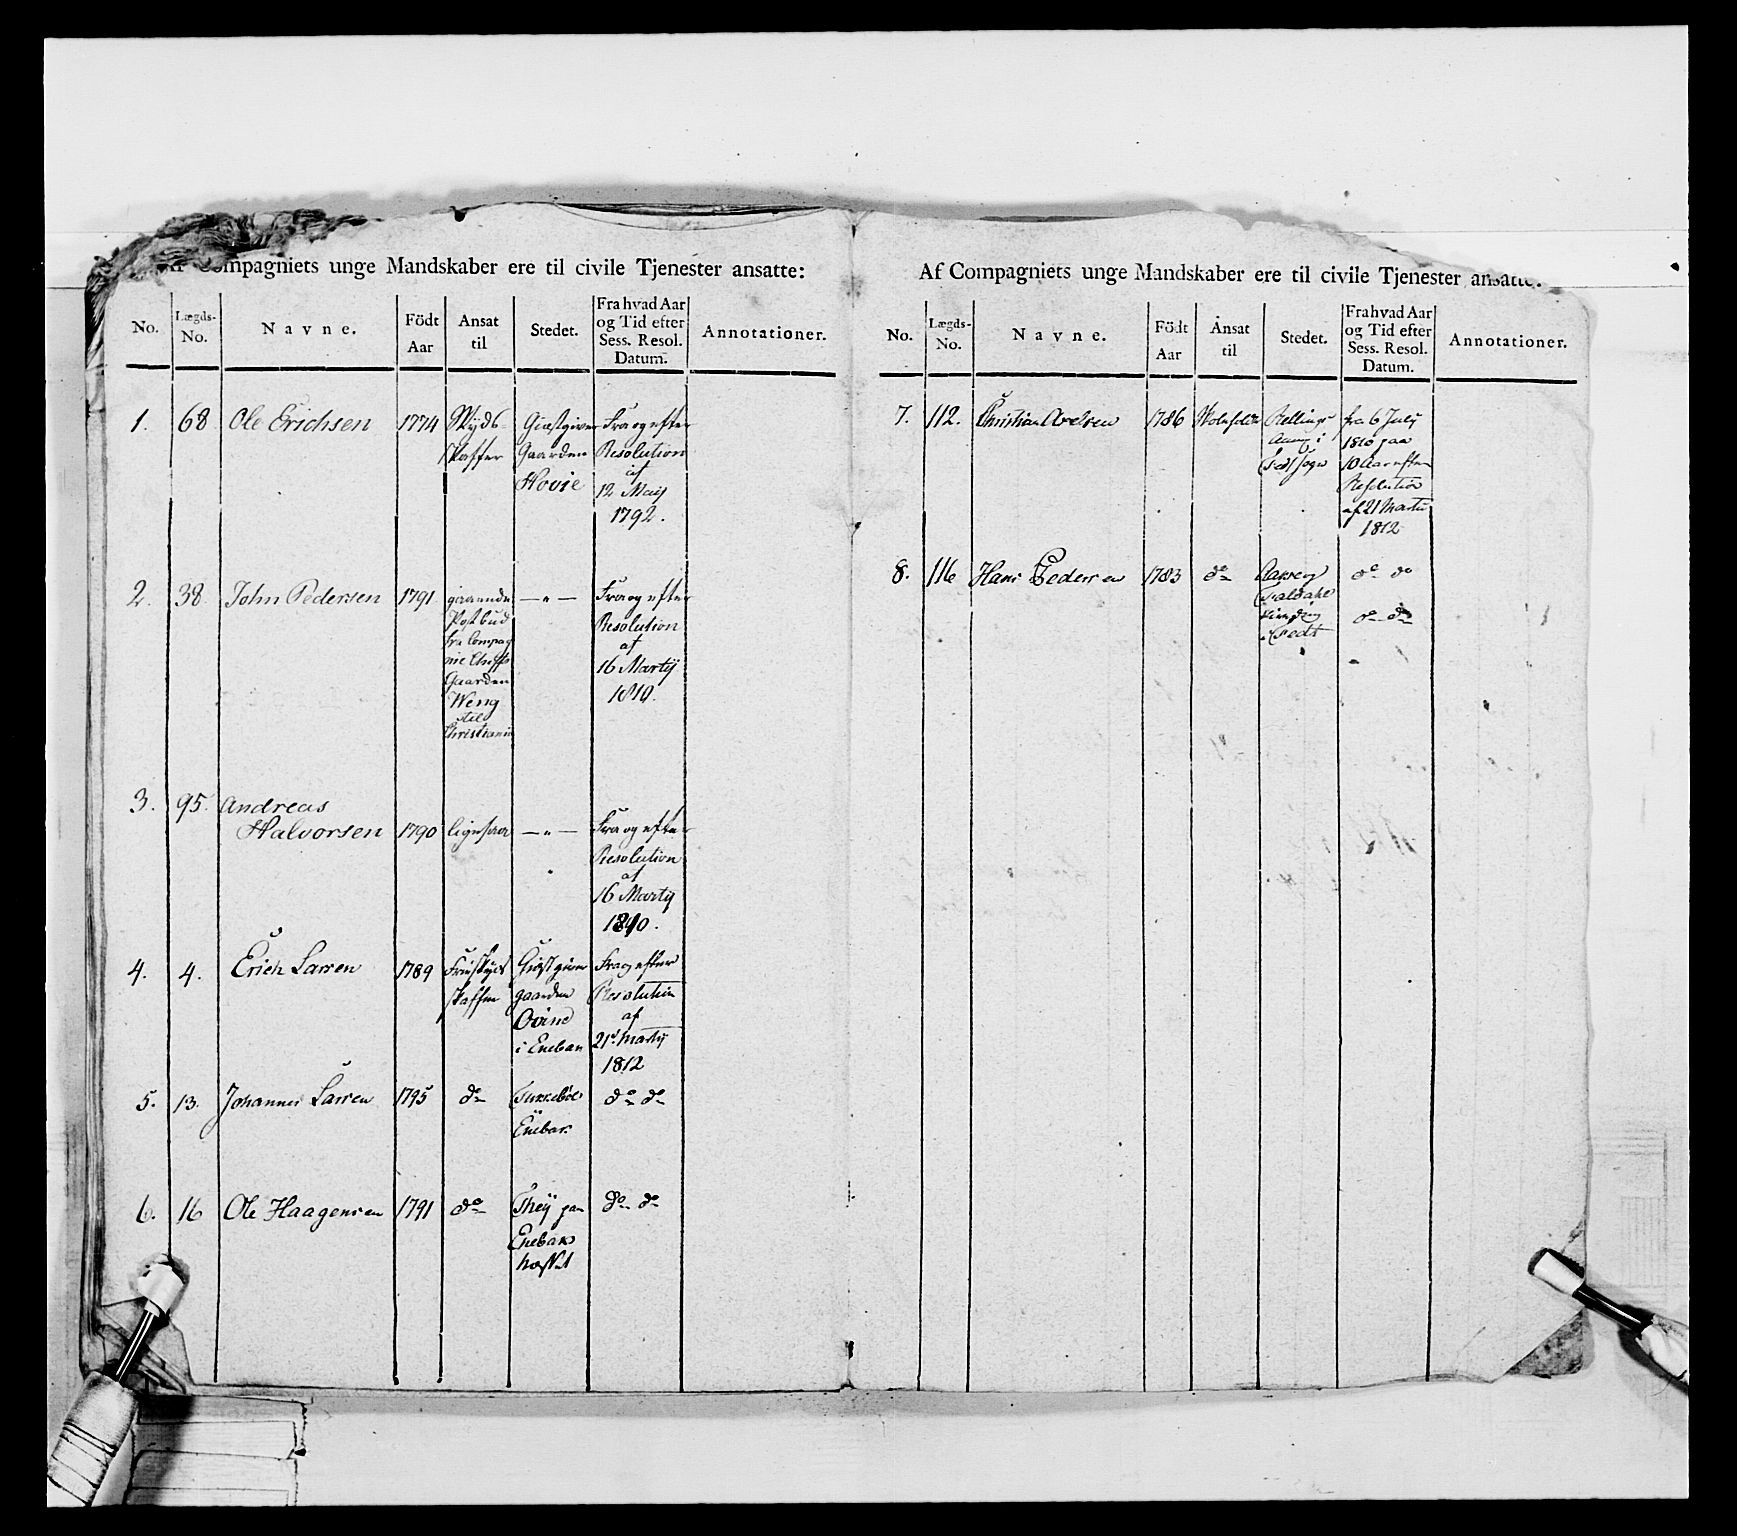 Af Compagniets unge Mandskaber ere til civile Tjenester ansatte:
No.
Lægds-No.
Navne.
Födt Aar
Ansat til
Stedet.
Fra hvad Aar og Tid efter Sess. Resol. Datum.
Annotationer.
1. 68 Ole Erichsen 1774 Skyds- Giæstgiver Fra og efter
skaffer Gaarden Resolution
Hovie af
12 Maij
1792.
2. 38. John Pedersen 1791 gaaende —"— Fra og efter
Postbud Resolution
fra Compag af
nie Chefs 16 Martij
Gaarden 1810.
Weng
til
Christiania
3. 95. Andreas
Halvorsen 1790 ligesaa —"— Fra og efter
Resolution
af
16 Martij
1810.
4. 4. Erich Larsen 1789 Friskyds Giæstgiver Fra og efter
skaffer gaarden Resolution
Ovind af
i Enebak 21d Martij
1812
5. 13. Johannes Larsen 1795 do do do
Enebak
6. 16 Ole Haagensen 1791 do Theij paa do do
Enebak
Af Compagniets unge Mandskaber ere til civile Tjenester ansatte:
No.
Lægds-No.
Navne.
Födt Aar
Ansat til
Stedet.
Fra hvad Aar og Tid efter Sess. Resol. Datum.
Annotationer.
7. 112. Christian Axelsen 1786 Skoleholder fra 6 Julij
i 1810 paa
Sogn 10 Aar efter
Resolution
af 21 Martij
1812
8. 116 Hans Pedersen 1783 do do do
do do